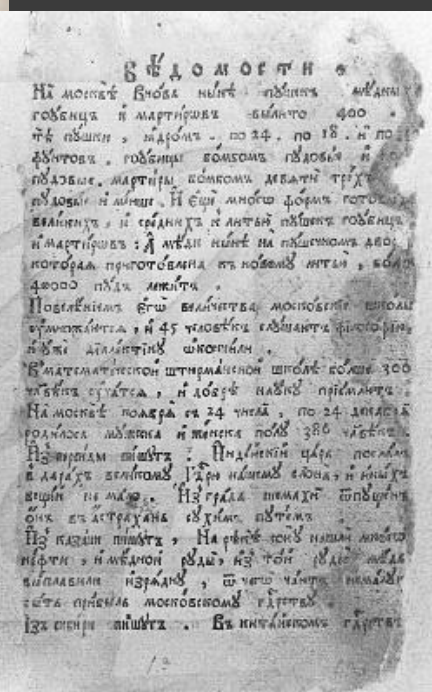 ВѢ́ДОМОСТИ
На москвѣ̀ вновь ны́нѣ пу́шекъ мѣ́дныхъ
гоубицъ и҆ марти́ровъ вы́лито 400 .
тѣ̀ пу́шки , ꙗ҆дро́мъ . по 24 . по 18 . и҆ по
фу́нтовъ . гоубицы бо́мбомъ пудовы́е и҆
пудовы́е . марти́ры бо́мбомъ девѧти́ тре́хъ
пудовы́е и҆ ме́нше . И҆ є҆щѐ мно́гѡ фо́рмъ гото́выхъ
вели́кихъ , и҆ сре́днихъ к литью̀ пу́шекъ гоубицъ
и҆ марти́ровъ : А҆ мѣ́ди ны́нѣ на пу́шечномъ дворѣ̀
кото́рая пригото́влена къ но́вому литью̀ , бо́лше
40000 пу́дъ лежи́тъ .
Повелѣ́нїемъ є҆гѡ̀ вели́чества моско́вскїе шко́лы
оу҆множа́ютсѧ , и҆ 45 человѣ́къ слу́шаютъ фїлосо́фїю ,
и҆ оу҆жѐ дїале́ктїку ѡ҆ко́нчили .
В̾ математи́ческой шту́рманской шко́лѣ бо́лше 300
чл҃вѣ́къ оу҆́чатсѧ , и҆ до́брѣ нау́ку прїе́млютъ .
На москвѣ̀ ноѧбрѧ̀ съ 24 числа̀ , по 24 декабрѧ̀
роди́лось му́жеска и҆ же́нска по́лу 386 чл҃вѣ́къ .
И҆з̾ перси́ды пи́шутъ . И҆нді́йскїй ца́рь посла́лъ
в̾ дара́хъ вели́кому Гдⷭ҇рю на́шему слона̀ , и҆ и҆ны́хъ
веще́й не ма́лѡ . И҆з̾ гра́да шемахѝ ѿпу́щенъ
ѻ҆́нъ въ а҆́страхань сухи́мъ путе́мъ .
И҆з̾ каза́ни пи́шутъ , На рѣкѣ̀ соку̀ нашлѝ мно́гѡ
не́фти , и҆ мѣ́дной руды̀ , и҆з̾ то́й руды̀ мѣ́дь
вы́плавили изрѧ́дну , ѿ чегѡ̀ ча́ютъ нема́лую
бы́ть при́быль моско́вскому гдⷭ҇рству .
И҆з̾ сиби́ри пи́шутъ . Въ кита́йскомъ гдⷭ҇рствѣ